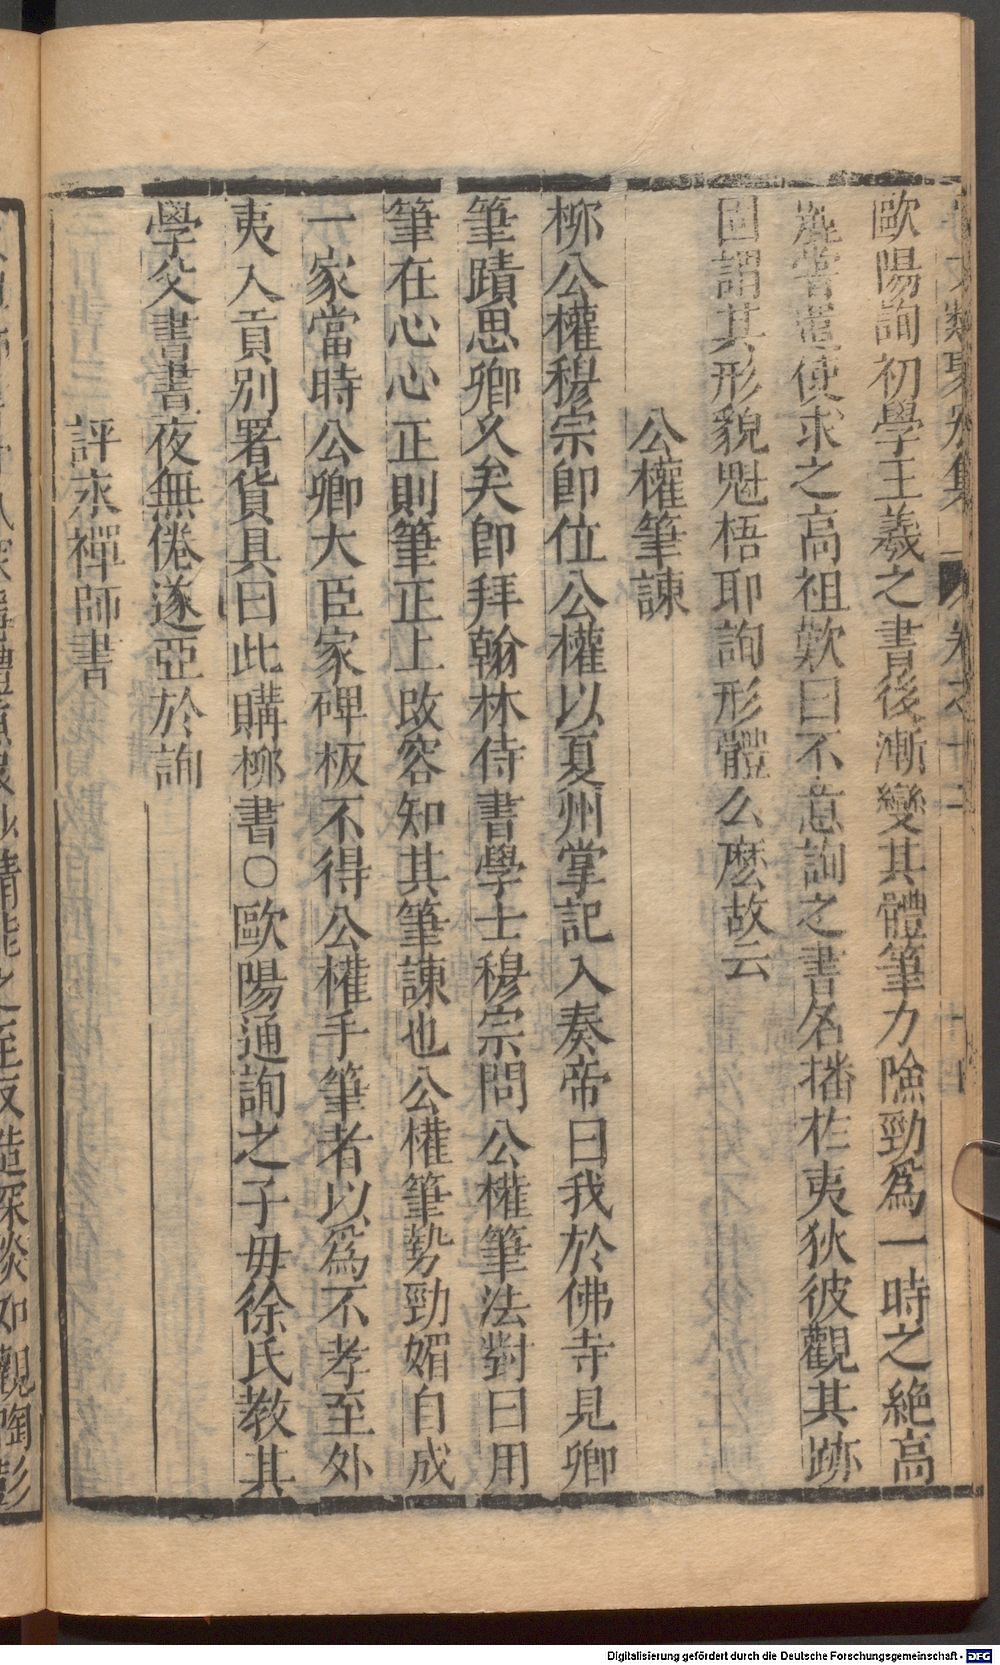 歐陽詢初學王羲之書後漸變其體筆力險勁爲一時之絶高
嘗遣使求之高祖歎曰不意詢之書名播於夷狄彼觀其跡
固謂其形貌魁梧耶詢形體么麽故云
公權筆諫
柳公權穆宗卽位公權以夏州掌記入奏帝曰我於佛寺見卿
筆蹟思卿久矣卽拜翰林侍書學士穆宗問公權筆法對曰用
筆在心心正則筆正上改容知其筆諫也公權筆勢勁媚自成
一家當時公卿大臣家碑板不得公權手筆者以爲不孝至外
夷入貢別署貨具曰此購柳書○歐陽通詢之子毋徐氏教其
學父書書夜無倦遂亞於詢
評永禪師書
Digitalisierung gefördert durch die Deutsche Forschungsgemeinschaft - DFG